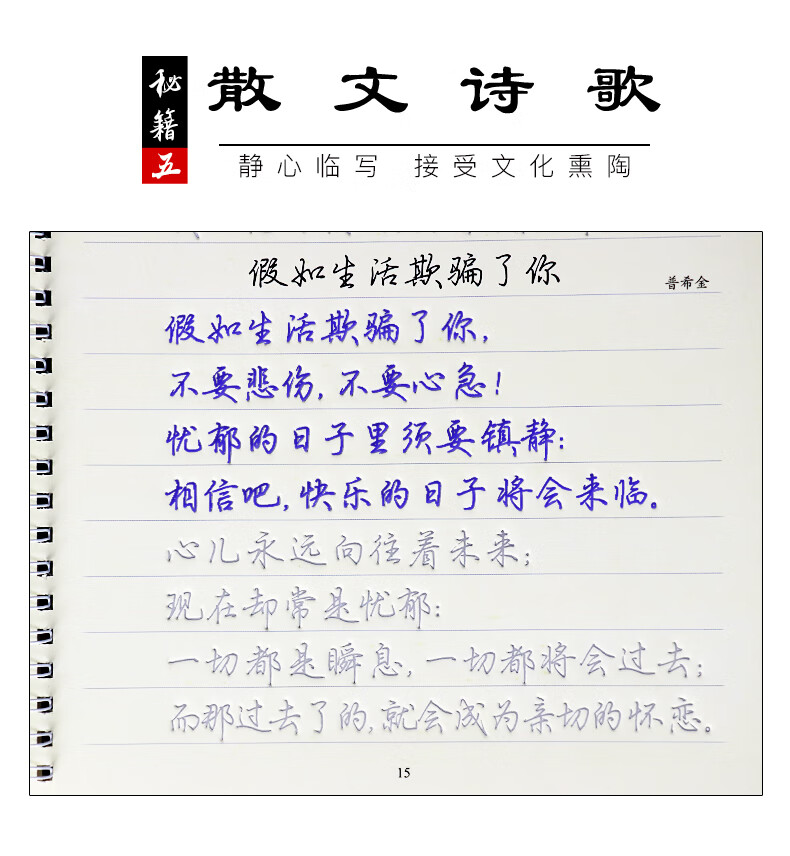 秘籍五
散文诗歌
静心临写 接受文化熏陶
假如生活欺骗了你
普希金
假如生活欺骗了你，
不要悲伤，不要心急！
忧郁的日子里须要镇静：
相信吧，快乐的日子将会来临。
心儿永远向往着未来；
现在却常是忧郁：
一切都是瞬息，一切都将会过去；
而那过去了的，就会成为亲切的怀恋。
15